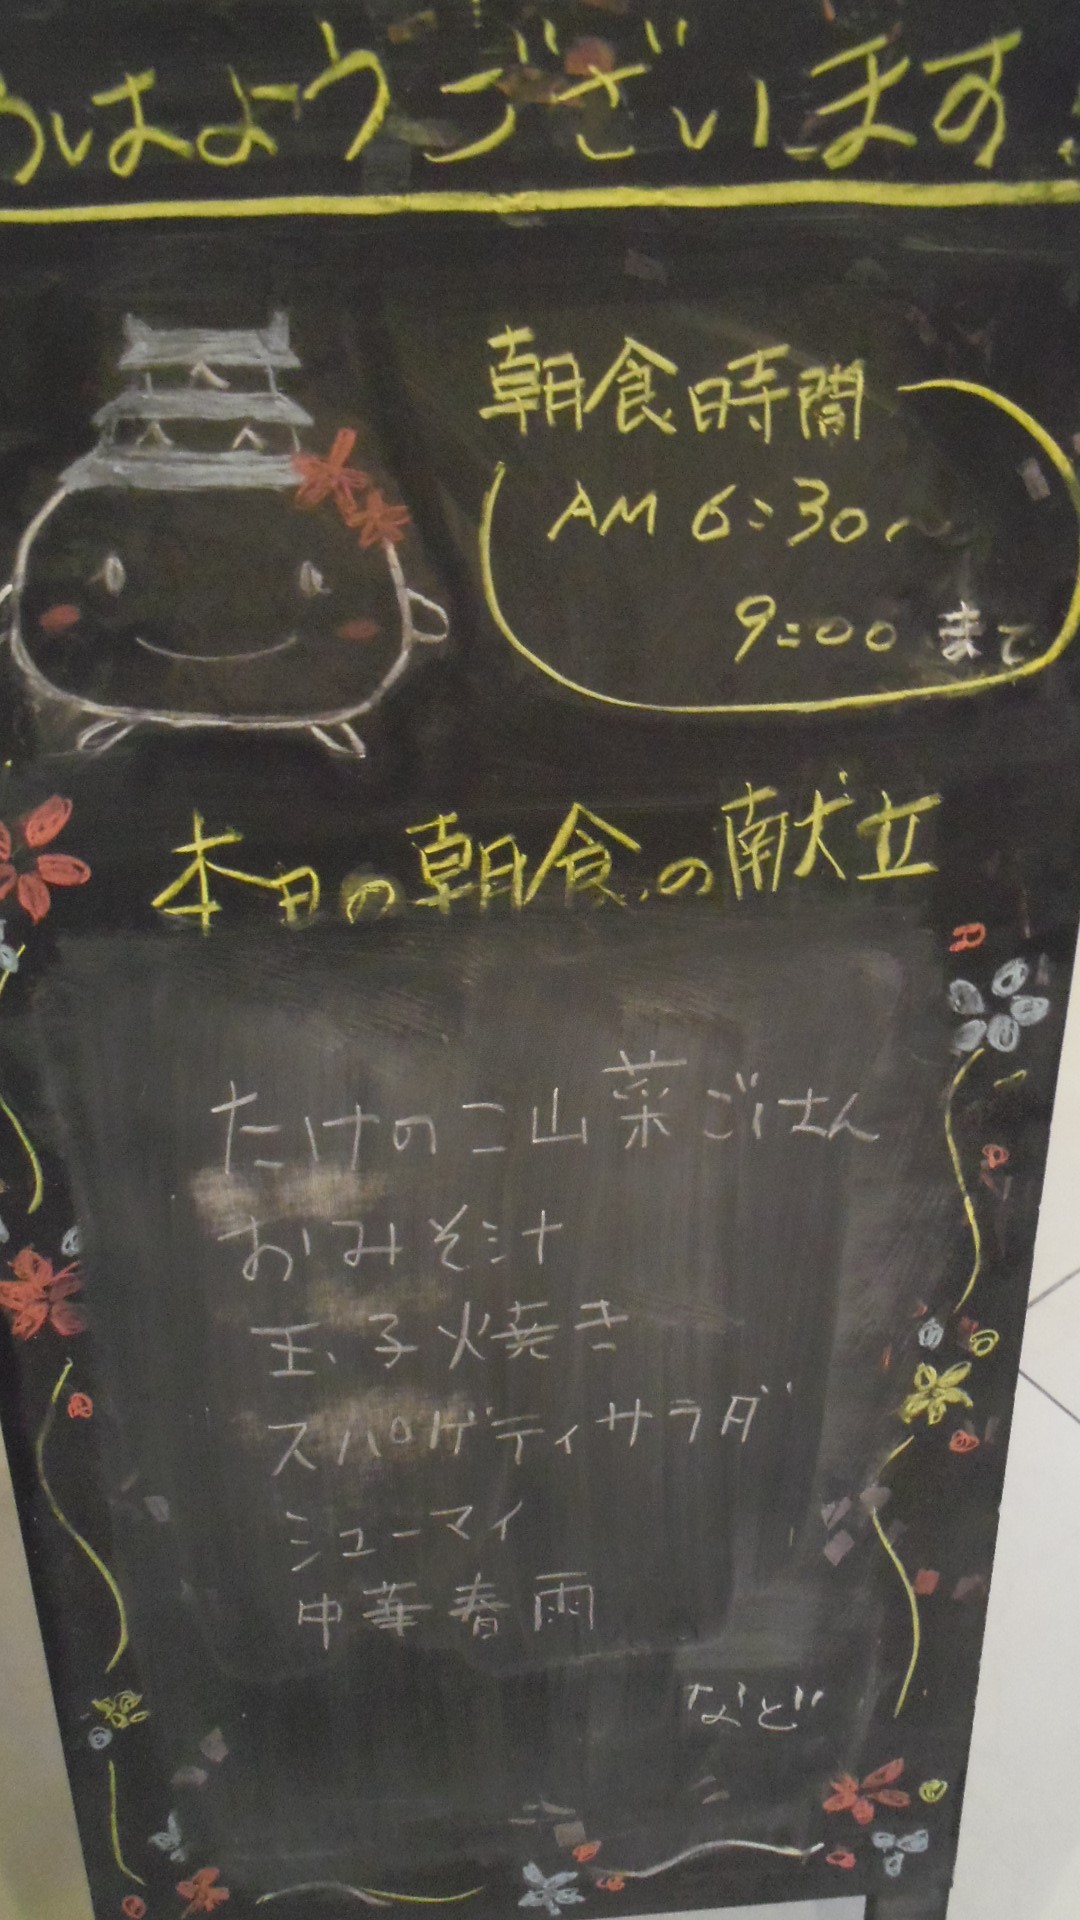 おはようございます!
朝食時間
AM 6:30~
9:00 まで
本日の朝食の献立
たけのこ山菜ごはん
おみそ汁
玉子焼き
スパゲティサラダ
シューマイ
中華春雨
など